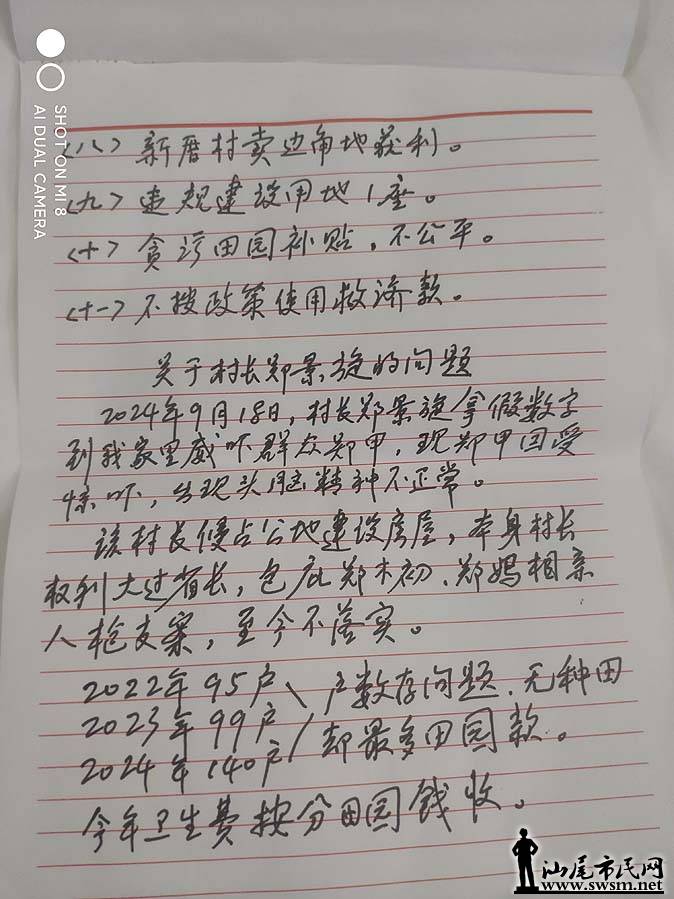 SHOT ON MI 8
AI DUAL CAMERA
<八> 新厝村卖边角地获利。
<九> 违规建设用地1座。
<十> 贪污田园补贴,不公平。
<十一> 不按政策使用救济款。
关于村长郑景旋的问题
2024年9月18日,村长郑景旋拿假数字
到我家里威吓群众郑甲,现郑甲因受
惊吓,出现头脑精神不正常。
该村长侵占公地建设房屋,本身村长
权利大过省长,包庇郑木初、郑妈相亲
人枪支案,至今不落实。
2022年95户\户数存问题、无种田
2023年99户
2024年140户/却最多田园款。
今年卫生费按分田园钱收。
汕尾市民网
www.swsm.net